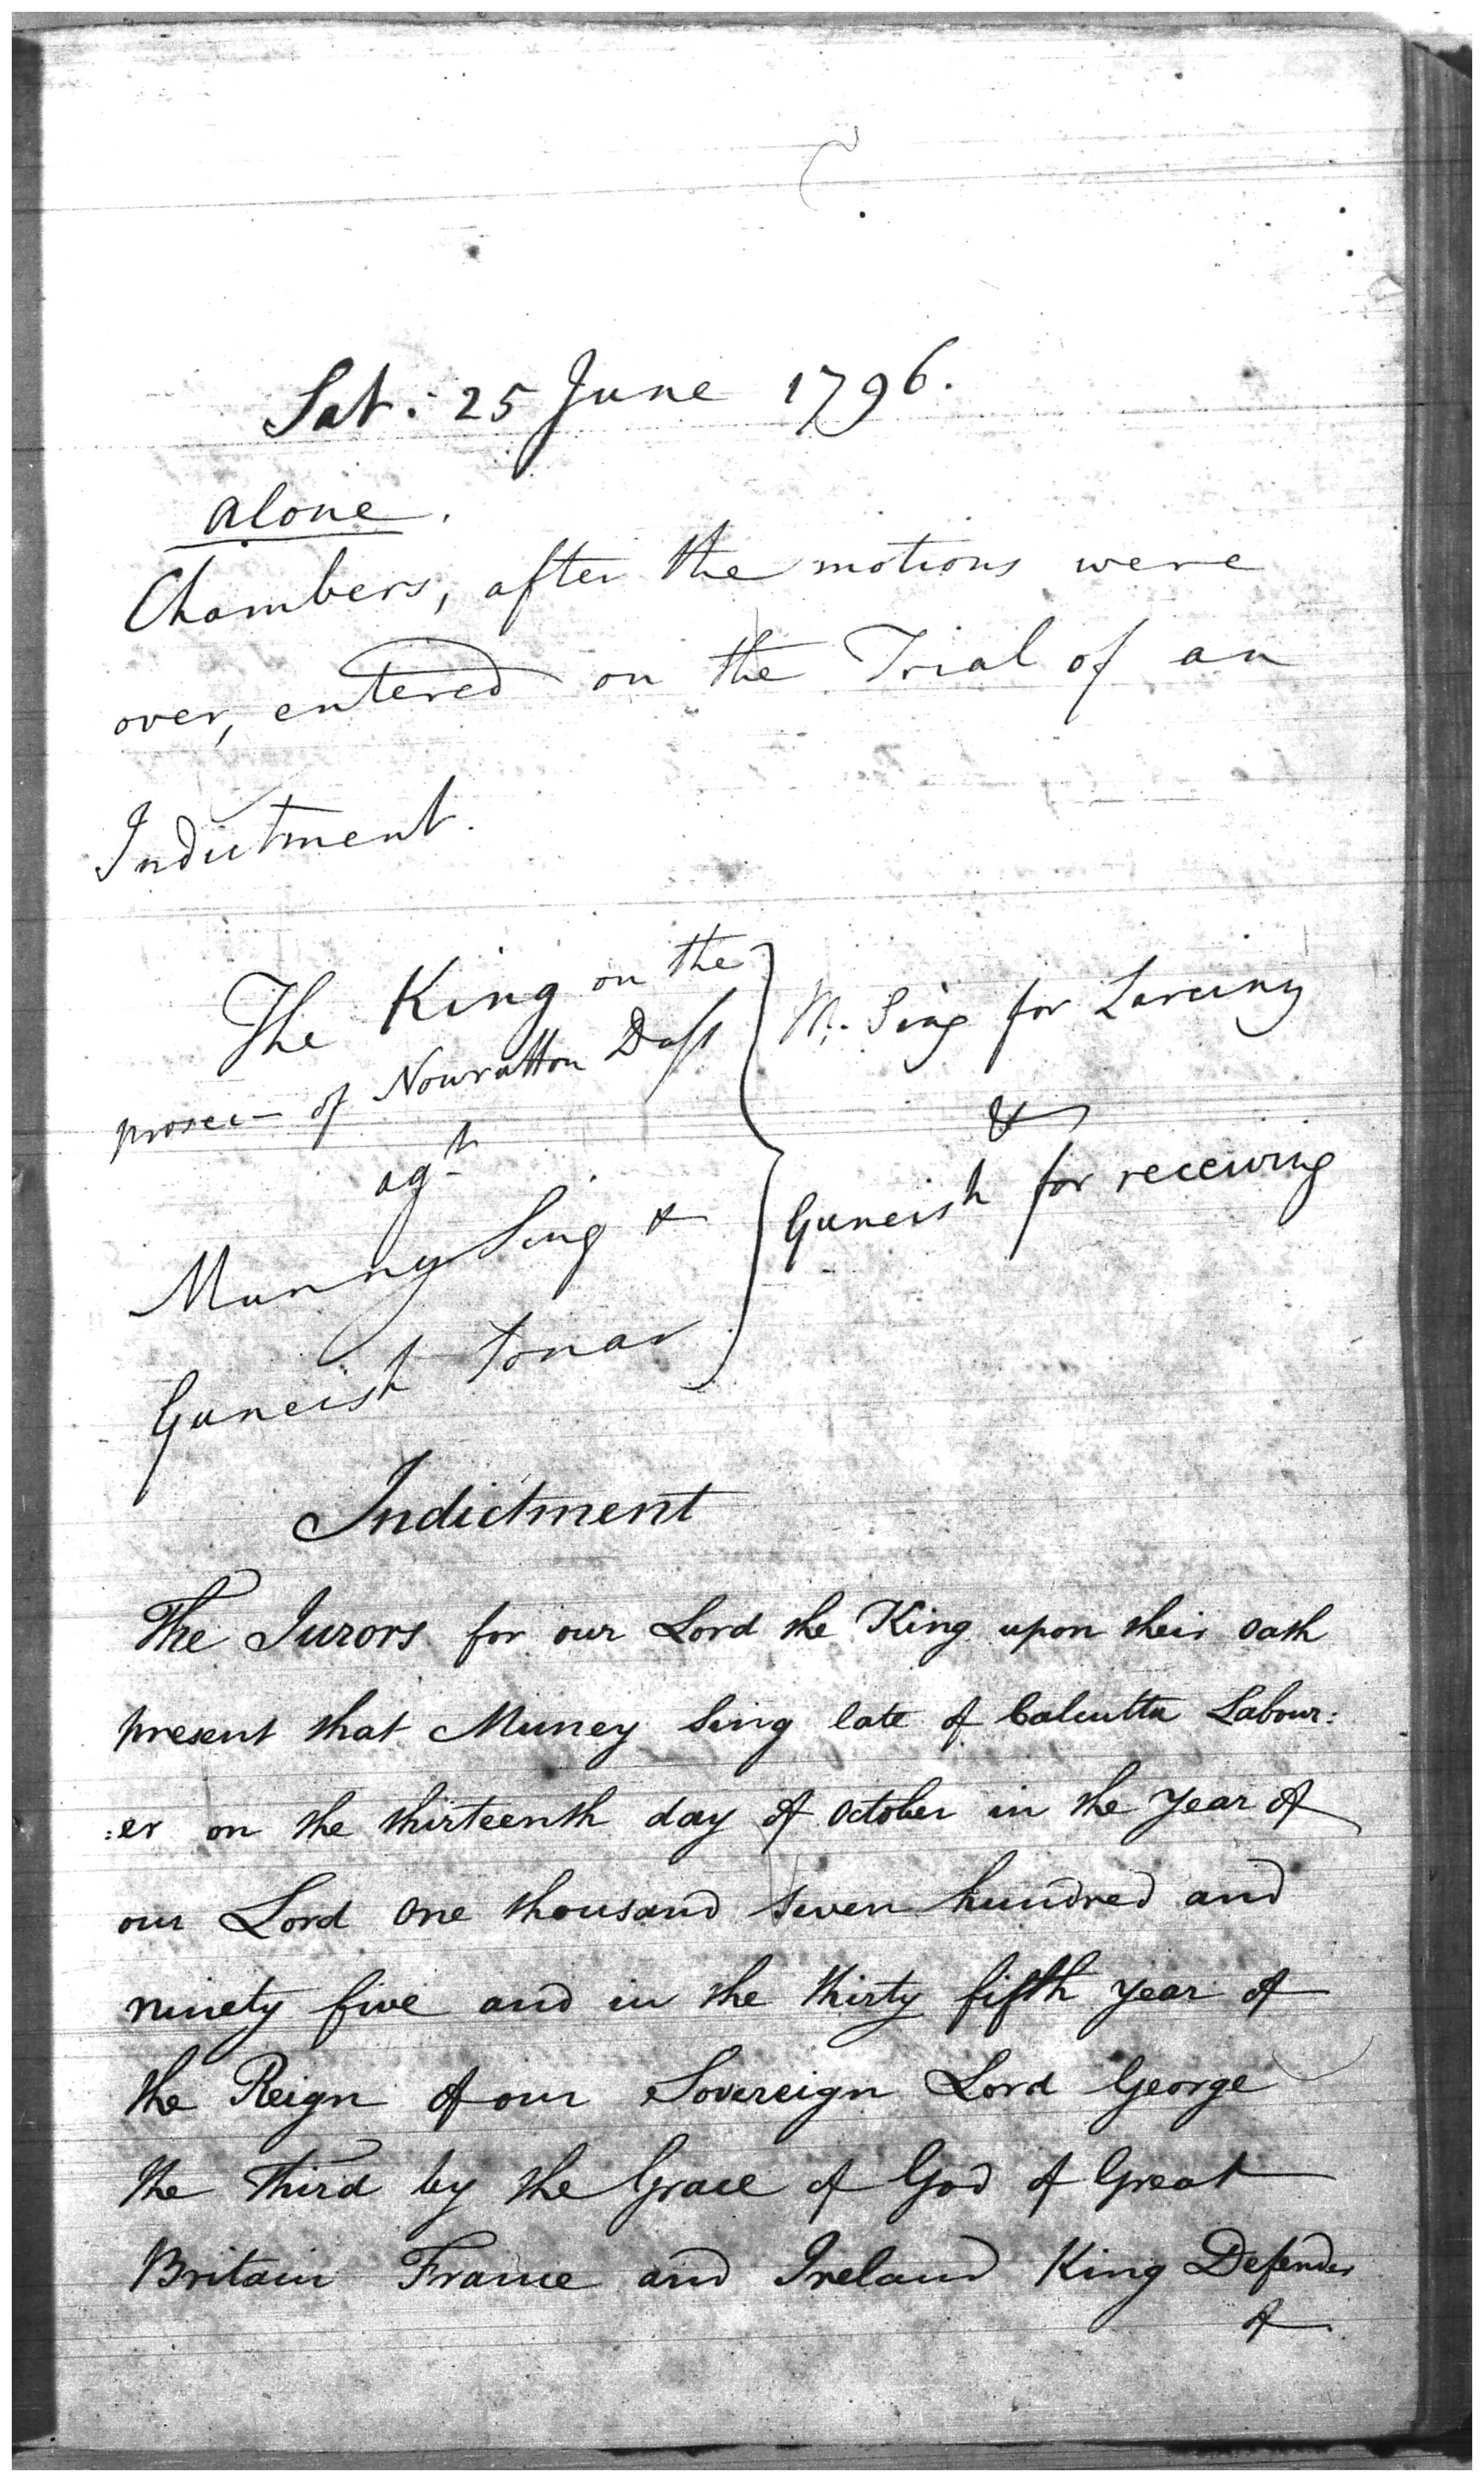 Sat: 25 June 1796.
alone.
Chambers, after the motions were
over, entered on the Trial of an
Indictment.
The King on the
prosec- of Nowrutton Dass
agt
Munny Sing &
Guneish Sonar
M. Sing for Larceny
&
Guneish for receiving
Indictment
The Jurors for our Lord the King upon their oath
present that Muney Sing late of Calcutta Labour:
:er on the thirteenth day of October in the year of
our Lord One thousand seven hundred and
ninety five and in the thirty fifth year of
the Reign of our Sovereign Lord George
the Third by the Grace of God of Great
Britain France and Ireland King Defender
of